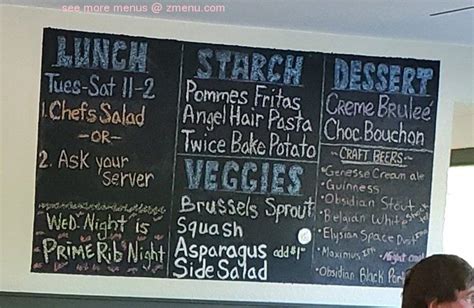 see more menus @ zmenu.com
LUNCH
Tues-Sat 11-2
1. Chefs Salad
-OR-
2. Ask your
Server
WED. Night is
PRIME Rib Night
STARCH
Pommes Fritas
Angel Hair Pasta
Twice Bake Potato
VEGGIES
Brussels Sprout
Squash
Asparagus add $1-
Side Salad
DESSERT
Creme Bruleé
Choc. Bouchon
~CRAFT BEERS~
Genesse Cream ale
Guinness
Obsidian Stout
Belgian White
Elysian Space Dust
Maximus
Obsidian Black